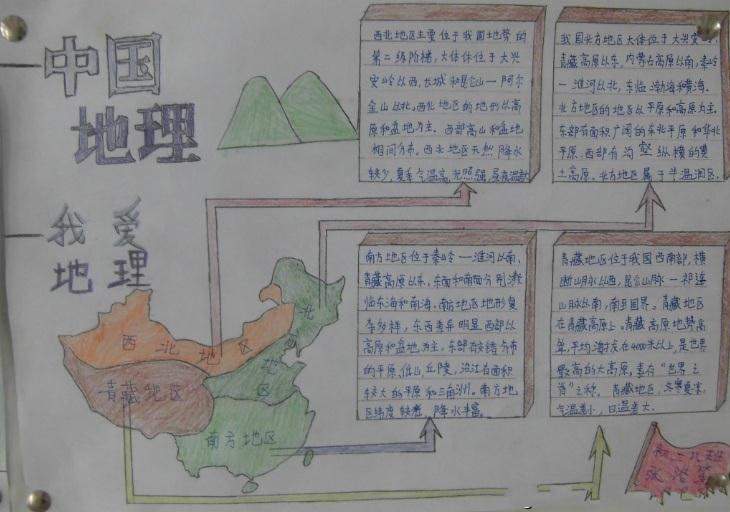 中国
地理
我爱
地理
西北地区主要位于我国地势的
第二级阶梯,大体位于大兴
安岭以西,长城和昆仑山一阿尔
金山以北,西北地区的地形以高
原和盆地为主。西部高山和盆地
相间分布。西北地区天然降水
较少,夏季气温高,光照强,昼夜温差
我国北方地区大体位于大兴安岭、
青藏高原以东,内蒙古高原以南,秦岭
一淮河以北,东临渤海和黄海。
北方地区的地形以平原和高原为主。
东部有面积广阔的东北平原和华北
平原,西部有沟壑纵横的黄
土高原。北方地区属于半温润区。
南方地区位于秦岭一淮河以南,
青藏高原以东,东面和南面分别濒
临东海和南海。南方地区地形复
杂多样,东西差异明显,西部以
高原和盆地为主,东部有较错分布
的平原、低山、丘陵,沿江有面积
较大的平原和三角洲。南方地
区纬度较低,降水丰富。
青藏地区位于我国西南部,横
断山脉以西,昆仑山脉一祁连
山脉以南,南至国界。青藏地区
在青藏高原上。青藏高原地势高
耸,平均海拔在4000米以上,是世界
最高的大高原,素有“世界之
脊”之称。青藏地区,冬寒夏凉,
气温差小,日温差大。
西北地区
北
方
地
区
青藏地区
南方地区
初二
班
张